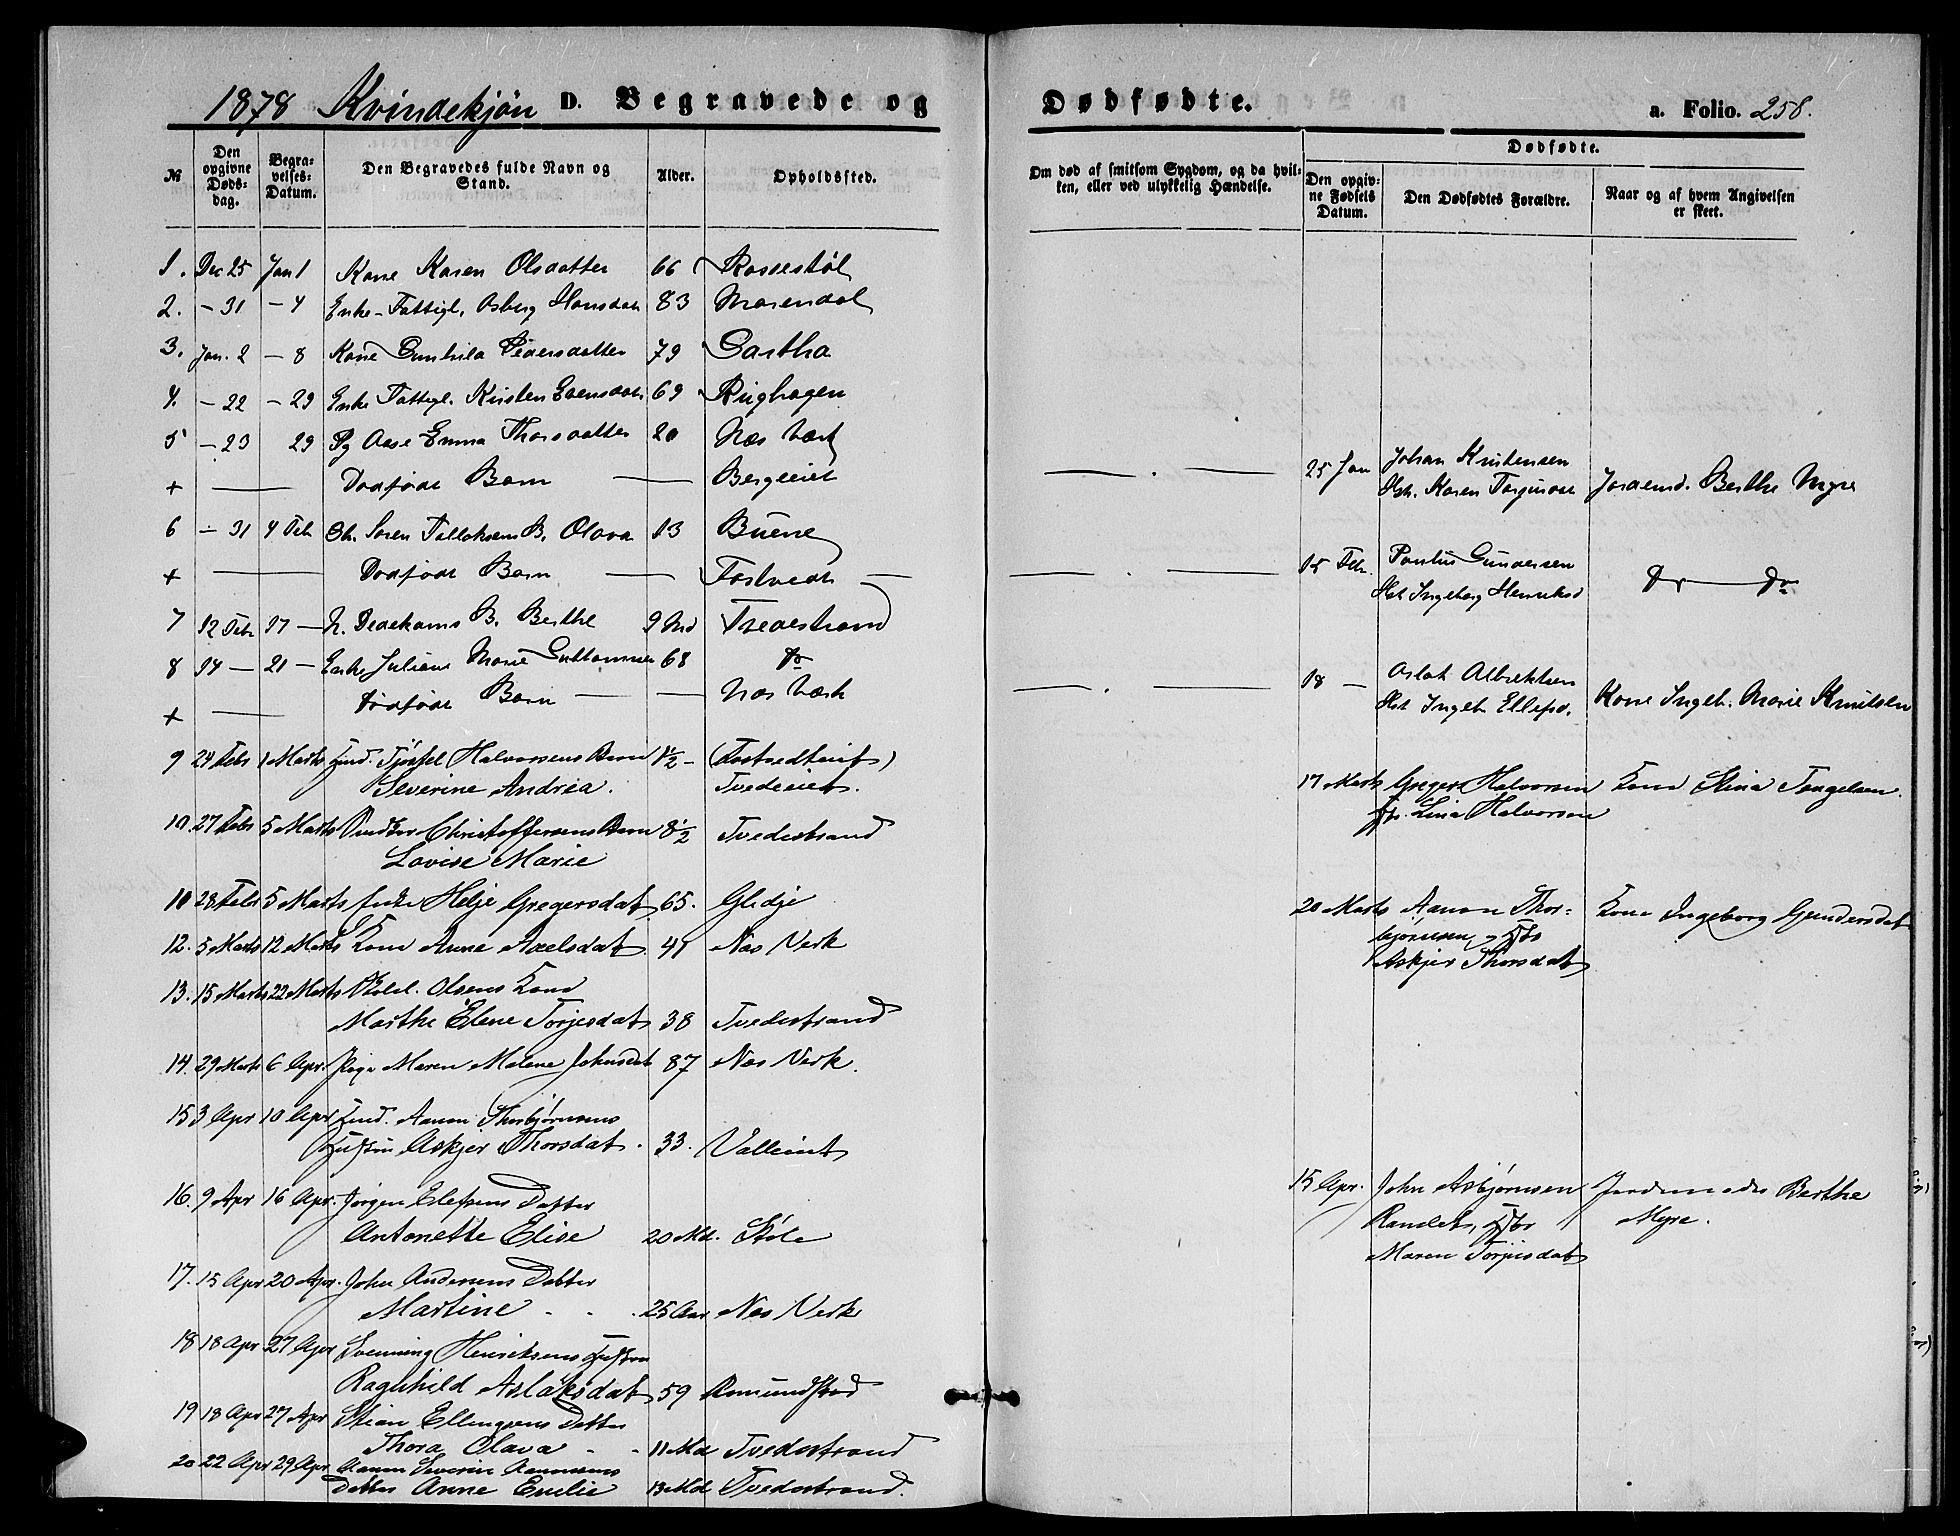 1878 Kvindekjön D. Begravede og Dødfødte. a. Folio. 258.
№ Den opgivne Døds-dag. Begra-velses-Datum. Den Begravedes fulde Navn og Stand. Alder. Opholdssted. Om død af smitsom Sygdom, og da hvil-ken, eller ved ulykkelig Hændelse. Dødfødte. Den opgiv-ne Fødsels Datum. Den Dødfødtes Forældre. Naar og af hvem Angivelsen er skeet.
1. Dec 25 Jan 1 Kone Karen Olsdatter 66 Rossestøl
2. - 31 - 4 Enke-Fattigl. Asberg Hansdatr 83 Mosendal
3. Jan. 2 - 8 Kone Gunhild Pedersdatter 79 Gartha
4. - 22 - 29 Enke Fattigl. Kirsten Evensdatr 69 Rughagen
5 - 23 29 Pg Aase Emma Thorsdatter 20 Næs Værk
+ — Dødfødt Barn — Bergeeiet — . — 25 Jan Johan Kristensen
Hst. Karen Torjusdt Jordemd. Berthe Myre
6 - 31 4 Febr Søren Tallaksens B. Olava 13 Buene
+ — Dødfødt Barn — Fostvedt — — . — 15 Febr. Paulus Gundersen
Hst Ingeborg Henriksd Do — Do
7 12 Febr 17 — N. Dedekams B. Berthe 9 Md Tvedestrand
8 14 — 21 — Enke Juliane Marie Guttormsen 68 Do
+ — Dødfødt Barn — — Næs Værk — . — 18 — Aslak Albrektsen
Hst Ingeb. Ellefsd. Kone Ingeb. Marie Knutsen
9 24 Febr 1 Marts Tjöstel Halvorsens Barn 1½ - (Fostvedteiet)
Severine Andrea. Tvedeeiet. 17 Marts Greger Halvorsen Kone Stina Tengelsen.
Lina Halvorsen
10 27 Febr 5 Marts Christoffersens Barn 8½ Tvedestrand
Lovise Marie
11 28 Febr 5 Marts Enke Helje Gregersdat 65. Gledje 20 Marts Aanon Thor-
bjørnsen og Hstr
Askjer Thorsdat Kone Ingeborg Gundersdat
12. 5 Marts 12 Marts Kone Anne Axelsdat 41 Næs Verk
13. 15 Marts 22 Marts Olsens Kone
Marthe Elene Torjesdat 38 Tvedestrand
14. 29 Marts 6 Apr. Pige Maren Malene Johnsdat 87 Næs Verk.
15 3 Apr 10 Apr Aanon Thorbjørnsens
Hustru Askjer Thorsdat. 33. Valleeiet
15 Apr. John Asbjørnsen Jordemoder Berthe
Hstr Myre.
Maren Torjusdat
16. 9 Apr 16 Apr. Jørgen Elefsens Datter
Antonette Elise 20 Md. Støle
17. 15 Apr 20 Apr. John Andersens Datter
Martine - - . 25 Aar Næs Verk
18 18 Apr 27 Apr Svenning Henriksens Hustru
Ragnhild Aslaksdat 59 Romundstad
19 18 Apr 27 Apr Stian Ellingsens Datter
Thora Olava - - 11 Md Tvedestrand
20 22 Apr 29 Apr Severin Aanonsens
Datter Anne Emilie 13 Md Tvedestrand.